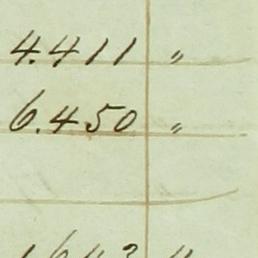 4.411 "
6.450 "